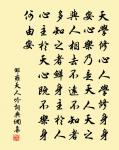 天學修心人學修身身
安心樂乃見天人天之
與人相去不遠不知者
多知之者鮮身主於人
心主於天心既不樂身
何由安
邵雍天人吟詞典網